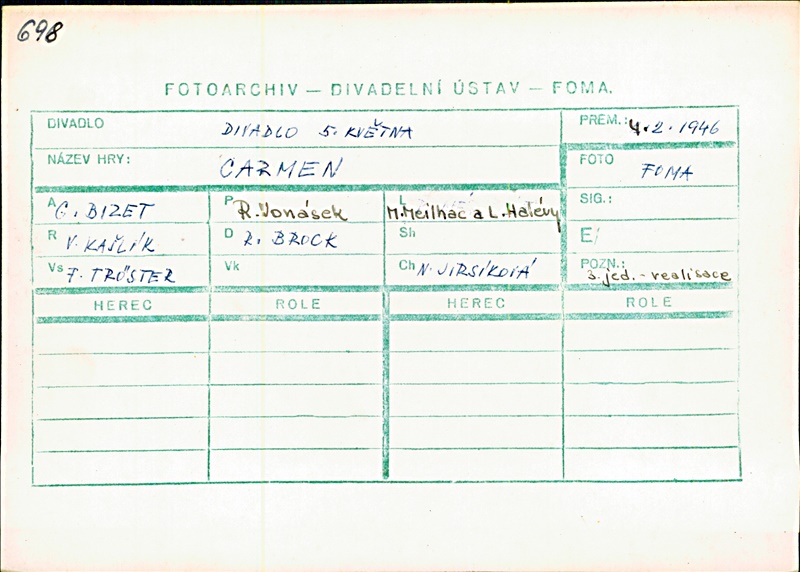 698
FOTOARCHIV — DIVADELNÍ ÚSTAV — FOMA.
DIVADLO DIVADLO 5. KVĚTNA PREM.: 4.2.1946
NÁZEV HRY: CARMEN FOTO FOMA
A G. BIZET P R. Jonásek L M. Meilhac a L. Halévy SIG.:
R V. KAŠLÍK D R. BROCK Sh E/
Vs F. TRÖSTER Vk Ch N. JIRSÍKOVÁ POZN.: 3. jed. - realisace
HEREC ROLE HEREC ROLE